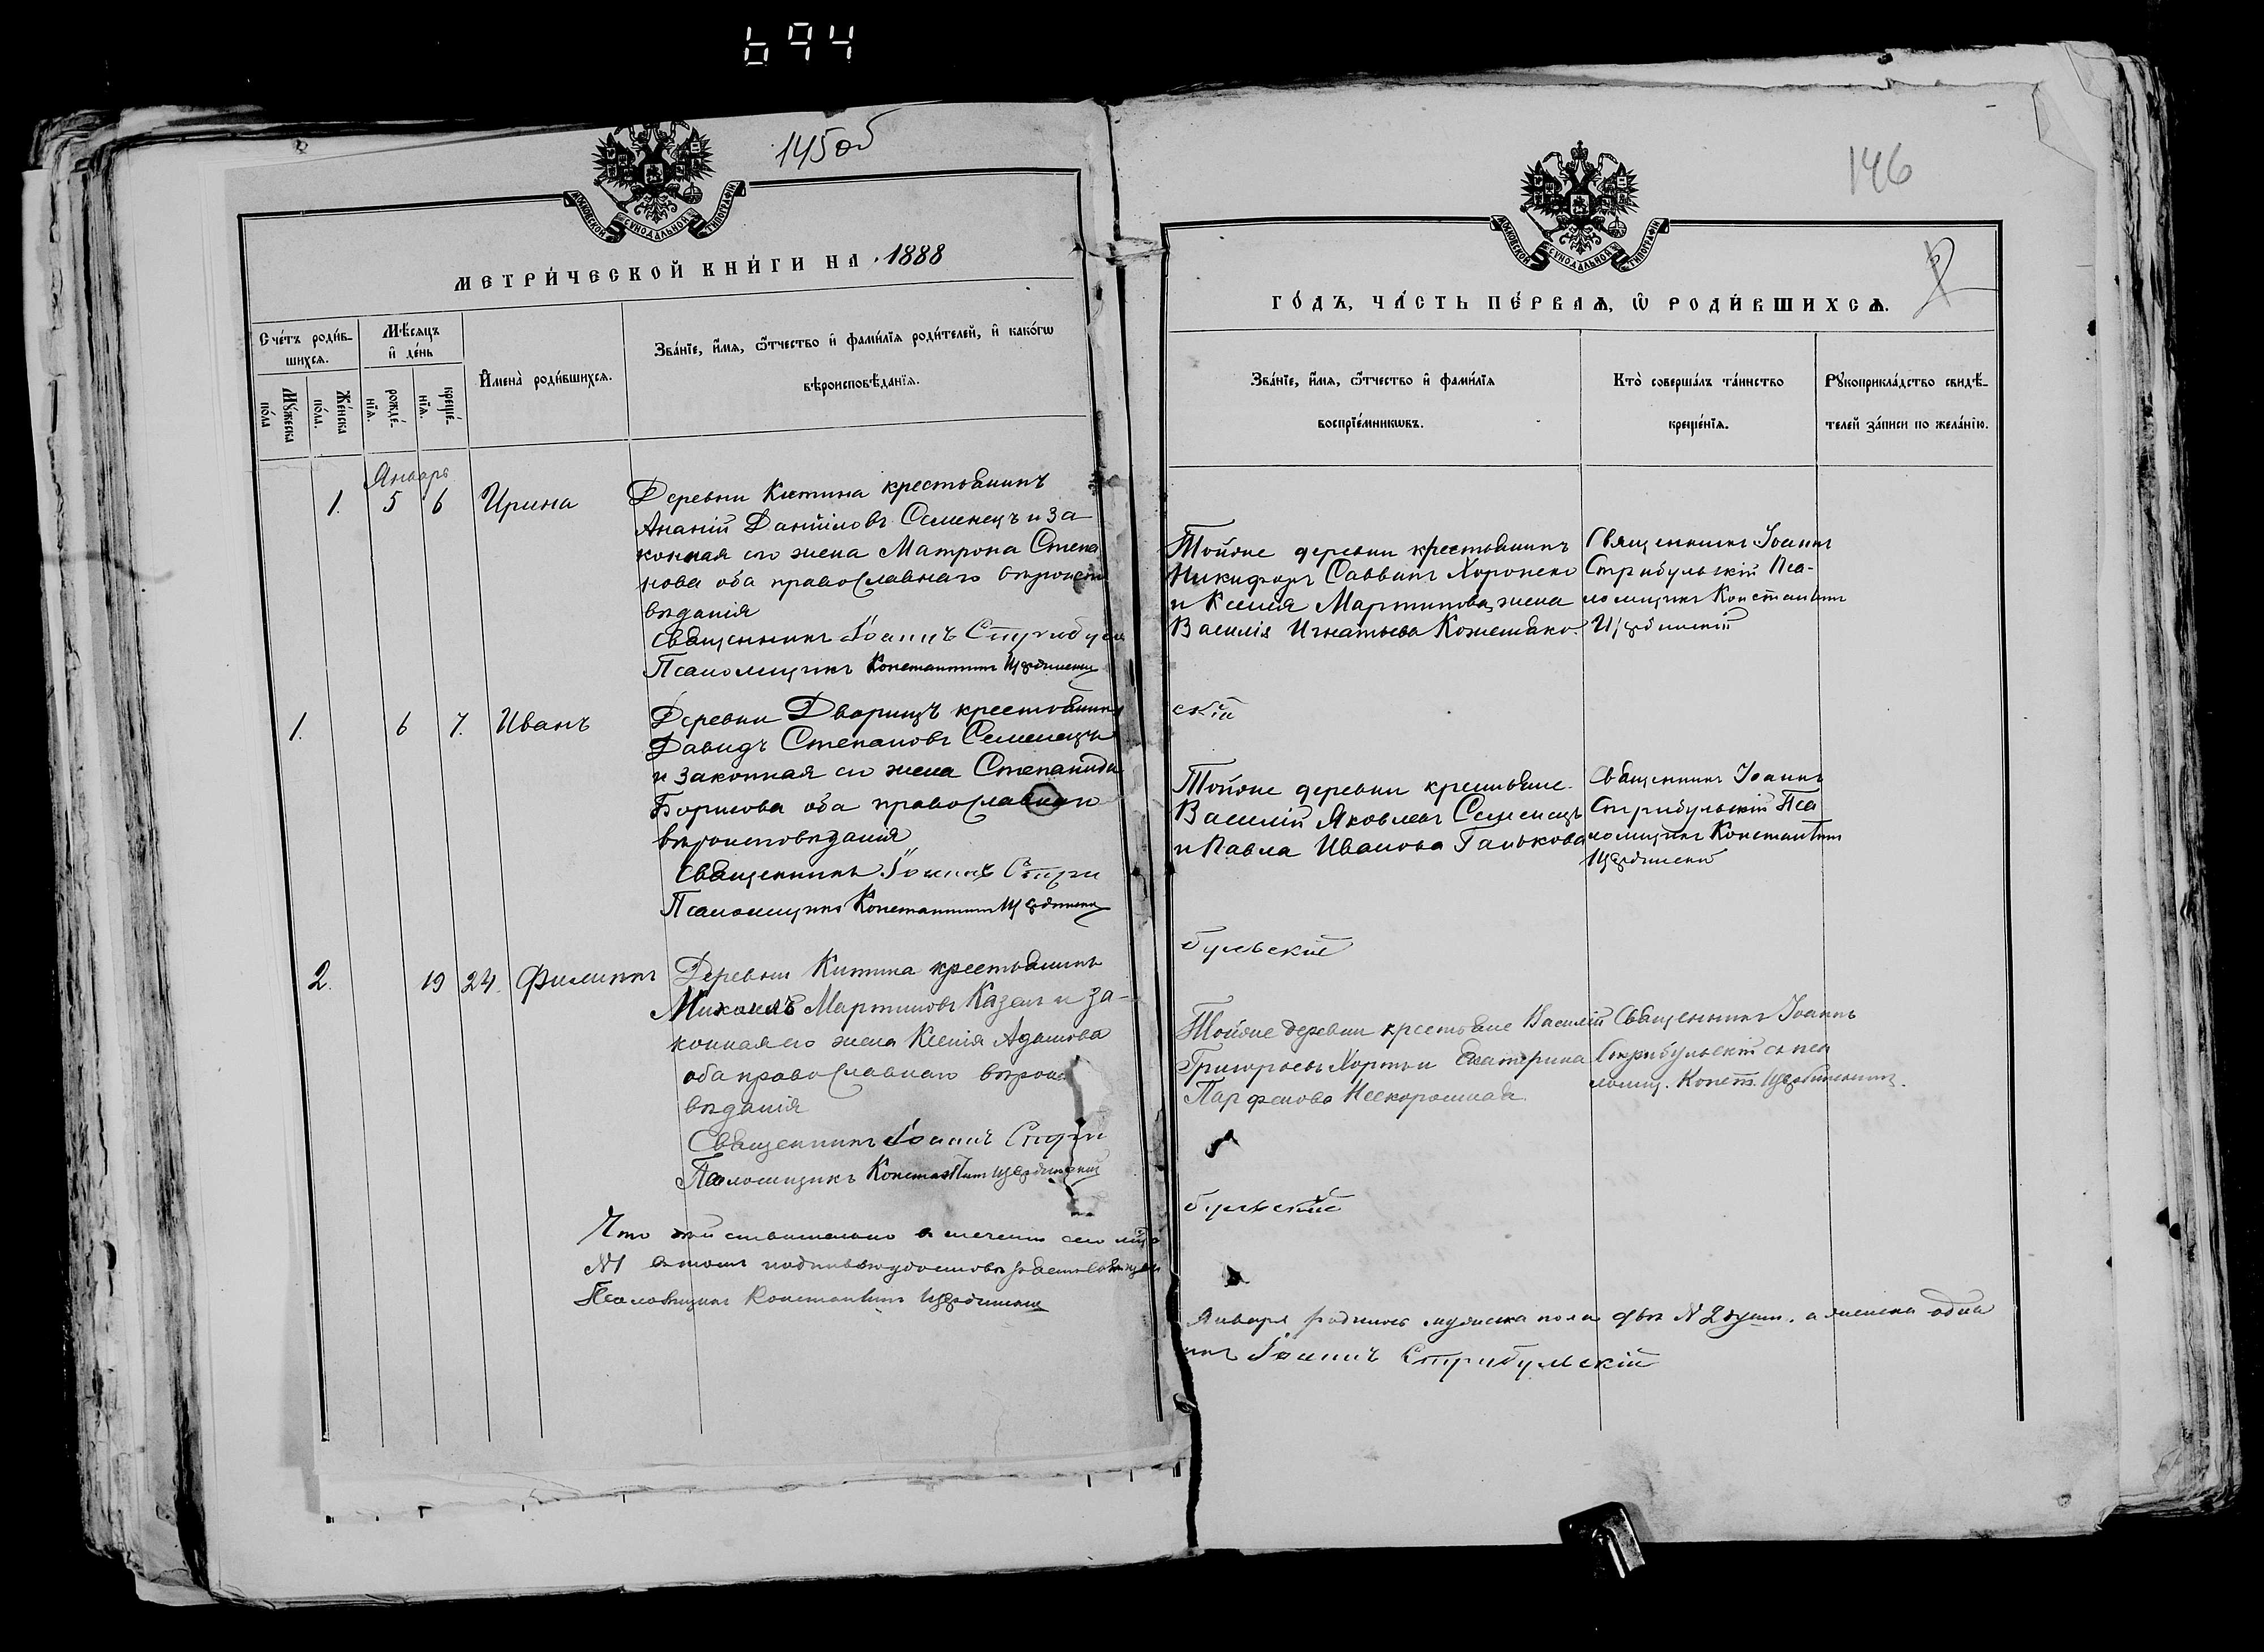 694
145об
МОСКОВСКОЙ СѴНОДАЛЬНОЙ ТИПОГРАФІИ
МЕТРИ́ЧЕСКОЙ КНИ́ГИ НА 1888
Сче́тъ роди́в-
шихсѧ.
Мѣ́сѧцъ
и҆ де́нь
И҆мена̀ роди́вшихсѧ.
Зва́нїе, и҆́мѧ, ѻ҆́тчество и҆ фами́лїѧ роди́телей, и҆ како́гѡ
вѣроисповѣ́данїѧ.
Мꙋ́жеска
по́ла
Же́нска
по́ла.
рожде́-
нїѧ.
креще́-
нїѧ.
Январь
1. 5 6 Ирина
Деревни Китина крестьянинъ
Ананій Даніиловъ Семенецъ и за
конная его жена Матрона Степа
нова оба православнаго вѣроиспо
вѣданія
Священникъ Іоаннъ Стрибуль
Псаломщикъ Константинъ Щербинскій
1. 6 7. Иванъ
Деревни Дворищъ крестьянинъ
Давидъ Степановъ Семенецъ
и законная его жена Степанида
Борисова оба православнаго
вѣроисповѣданія
Священникъ Іоаннъ Стри
Псаломщикъ Константинъ Щербинскій
2. 19 24. Филиппъ
Деревни Китина крестьянинъ
Михаилъ Мартиновъ Казан и за-
конная его жена Ксенія Адамова
оба православнаго вѣроис
вѣданія
Священникъ Іоаннъ Стри
Псаломщикъ Константинъ Щербинскій
Что дѣйствительно въ теченіи сего
№1 въ томъ подписью удостовѣряемъ Священ
Псаломщикъ Константинъ Щербинскій
146
МОСКОВСКОЙ СѴНОДАЛЬНОЙ ТИПОГРАФІИ
2
ГО́ДЪ, ЧА́СТЬ ПЕ́РВАѦ, Ѡ҆ РОДИ́ВШИХСѦ.
Зва́нїе, и҆́мѧ, ѻ҆́тчество и҆ фами́лїѧ
воспрїе́мникѡвъ.
Кто̀ соверша́лъ та́инство
креще́нїѧ.
Рꙋкоприкла́дство свидѣ́-
телей за́писи по жела́нїю.
Тойже деревни крестьянинъ
Никифоръ Саввинъ
и Ксенія Мартинова жена
Василія Игнатьева
Священникъ Іоаннъ
Стрибульскій Пса-
ломщикъ Константинъ
Щербинскій
скій
Тойже деревни крестьяне
Василій Яковлевъ Семенецъ
и Павла Иванова Ганькова
Священникъ Іоаннъ
Стрибульскій Пса
ломщикъ Константинъ
Щербинскій
бульскій
Тойже деревни крестьяне Василій
Григорьевъ и Екатерина
Парфенова
Священникъ Іоаннъ
Стрибульскій съ пса
ломщ. Конст. Щербинскимъ.
бульскій
Января родилось мужска пола два № 2 душъ, а женска одна
икъ Іоаннъ Стрибульскій